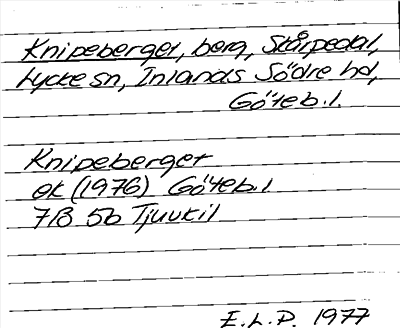 Knipeberget, berg, Stålpedal,
Lycke sn, Inlands Södre hd,
Göteb. l.
Knipeberget
ek (1976) Göteb. l
7B 5b Tjuvkil
E.L.P. 1977